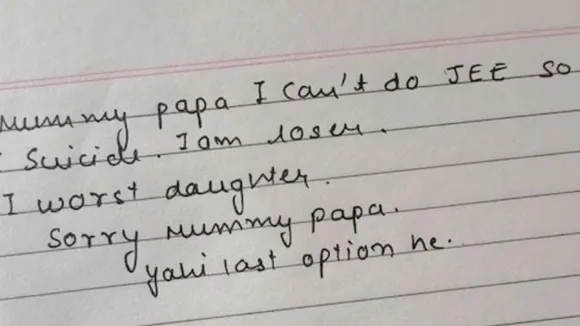 Mummy papa I can't do JEE so
suicide. I am loser.
I worst daughter.
Sorry mummy papa.
yahi last option he.